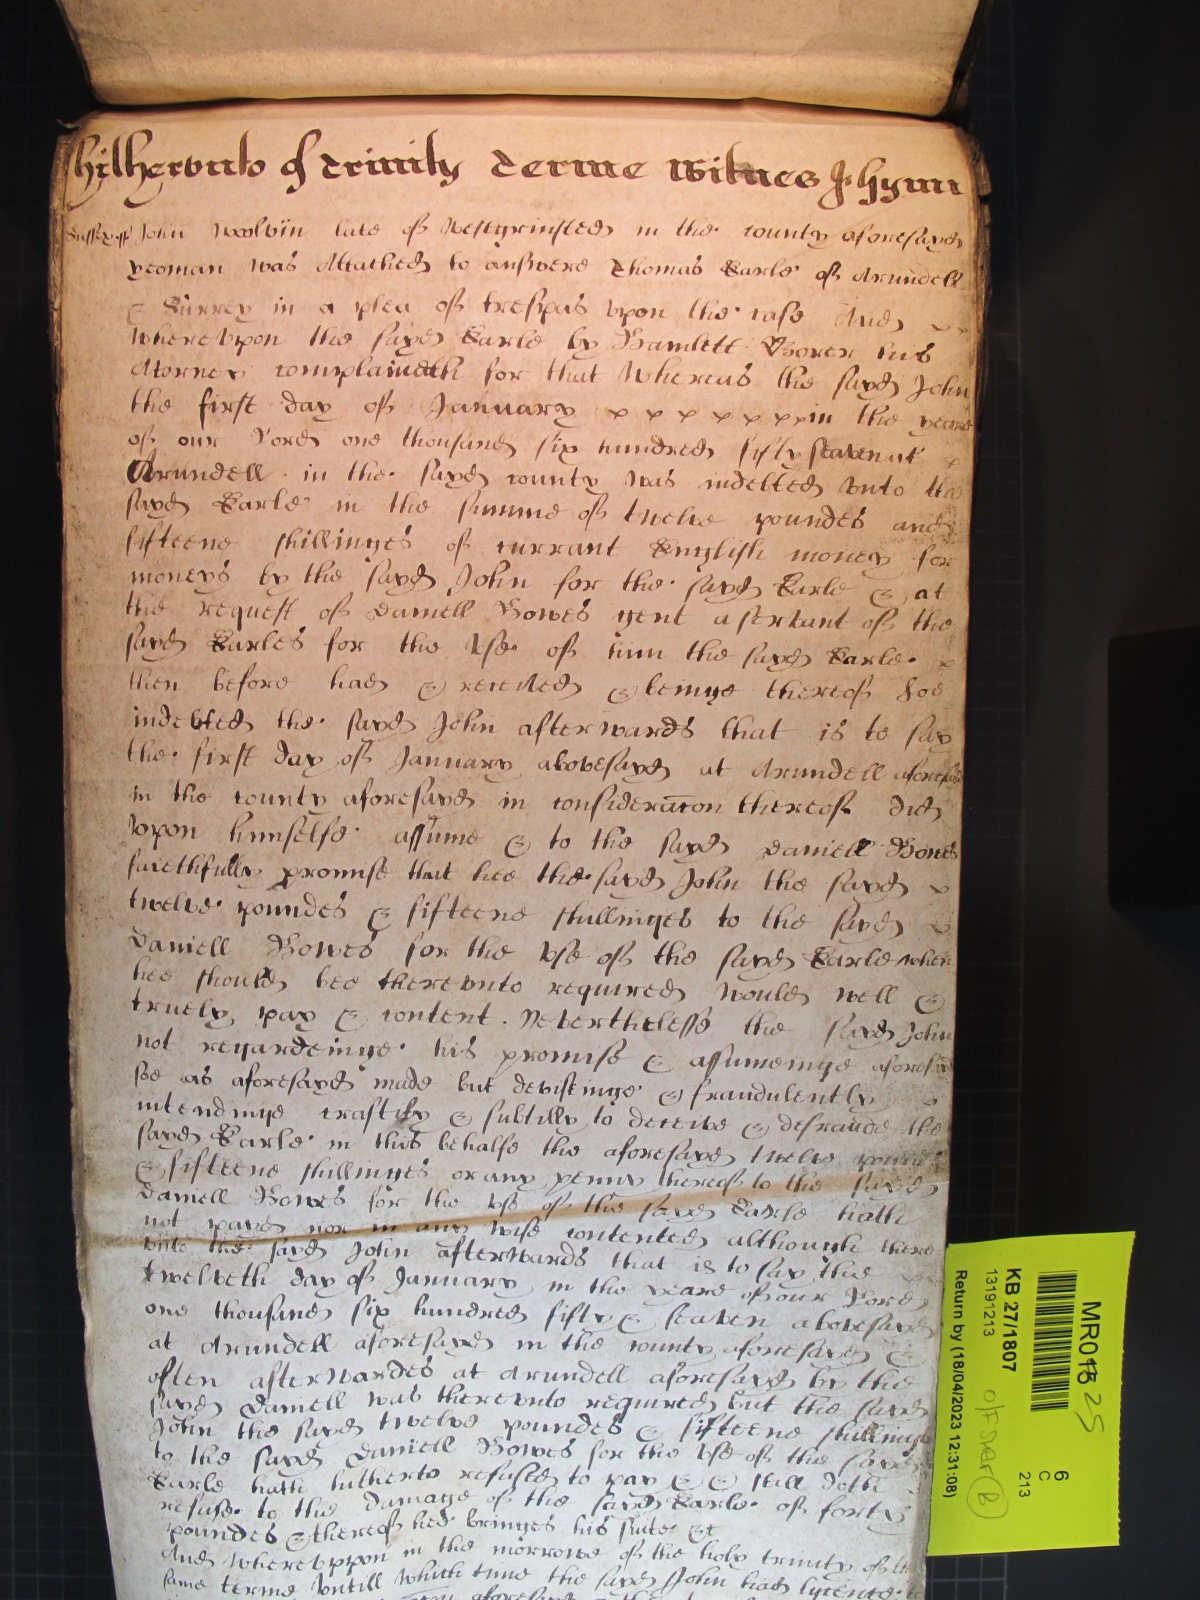 hitherunto of Trinity Terme Witnes J: hynn
Sussex ss John Woolvin late of Westgrinsted in the county aforesayd
yeoman was Attached to answere Thomas Earle of Arundell
& Surrey in a plea of trespas upon the case And
whereupon the sayd Earle by Hamlett Borer his
Attorney complaineth for that Whereas the sayd John
the first day of January in the yeare
of our Lord one thousand six hundred fifty seaven at
Arundell in the sayd county was indebted unto the
sayd Earle in the summe of twelve poundes and
fifteene shillinges of currant English money for
moneys by the sayd John for the sayd Earle & at
the request of Daniell Bowes gent a servant of the
sayd Earles for the use of him the sayd Earle
then before had & received & beinge thereof soe
indebted the sayd John afterwards that is to say
the first day of January abovesayd at Arundell aforesayd
in the county aforesayd in consideracon thereof did
upon himselfe assume & to the sayd Daniell Bowes
faiethfully promise that hee the sayd John the sayd
twelve poundes & fifteene shillinges to the sayd
Daniell Bowes for the use of the sayd Earle when
hee should bee thereunto required would well &
truely pay & content. Neverthelesse the sayd John
not regardeinge his promise & assumeinge aforesaid
soe as aforesayd made but deviseinge & fraudulently
intendinge craftily & subtilly to deceive & defraude the
sayd Earle in this behalfe the aforesayd twelve poundes
& fifteene shillinges or any penny thereof to the sayd
Daniell Bowes for the use of the sayd Earle hath
not payed nor in any wise contented although there
unto the sayd John afterwards that is to say the
twelveth day of January in the yeare of our Lord
one thousand six hundred fifty & seaven abovesayd
at Arundell aforesayd in the county aforesayd &
often afterwardes at Arundell aforesayd by the
sayd Daniell was thereunto required but the sayd
John the sayd twelve poundes & fifteene shillinges
to the sayd Daniell Bowes for the use of the sayd
Earle hath hitherto refused to pay & & still doth
refuse to the damage of the sayd Earle of forty
poundes & thereof hee bringes his suite &c
And whereuppon in the morrowe of the holy trinity of the
same terme Untill which time the sayd John had lycence to
MR018 25
KB 27/1807
13191213
Return by (18/04/2023 12:31:08)
6
C
213
B